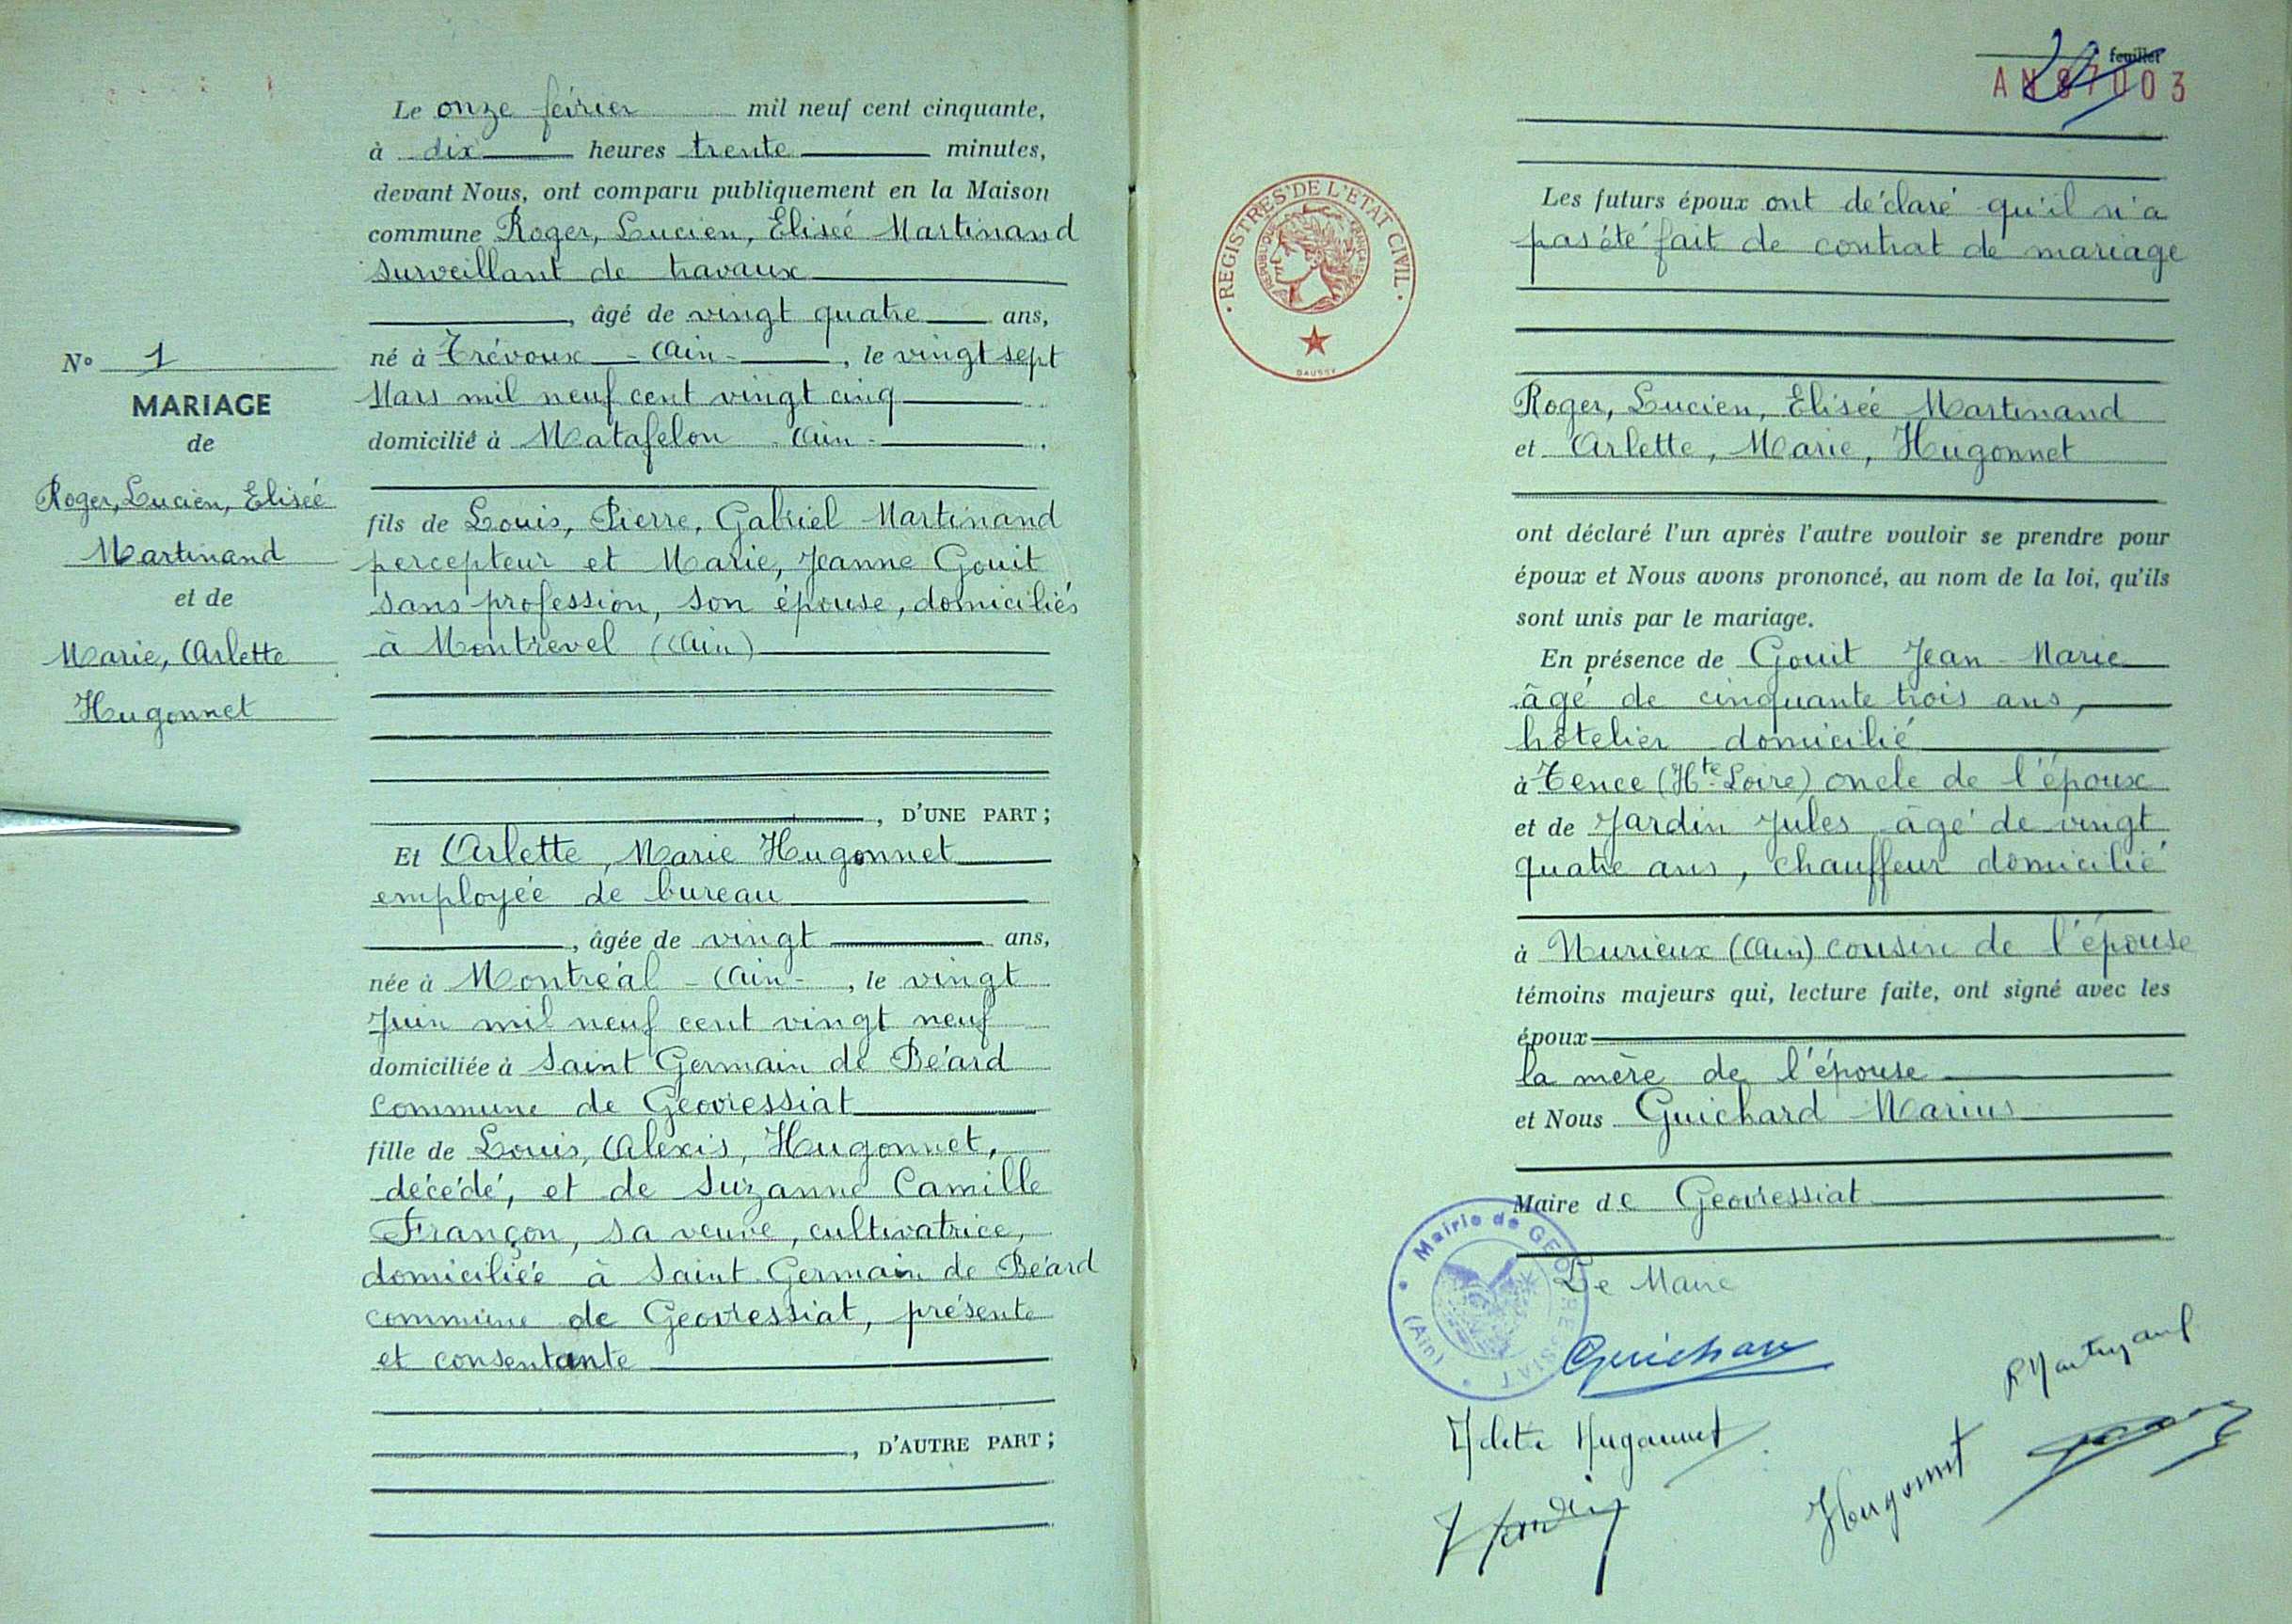 Le onze février mil neuf cent cinquante,
à dix heures trente minutes,
devant Nous, ont comparu publiquement en la Maison
commune Roger, Lucien, Elisée Martinand
surveillant de travaux
, âgé de vingt quatre ans,
né à Trévoux - Ain - , le vingt sept
Mars mil neuf cent vingt cinq
domicilié à Matafelon - Ain - .
N° 1
MARIAGE
de
Roger, Lucien, Elisée
Martinand
et de
Marie, Arlette
Hugonnet
fils de Louis, Pierre, Gabriel Martinand
percepteur et Marie, Jeanne Gouit
sans profession, son épouse, domiciliés
à Montrevel (Ain)
, D'UNE PART ;
Et Arlette, Marie Hugonnet
employée de bureau
, âgée de vingt ans,
née à Montréal - Ain - , le vingt
Juin mil neuf cent vingt neuf
domiciliée à Saint Germain de Béard
commune de Geovressiat
fille de Louis, Alexis, Hugonnet,
décédé, et de Suzanne Camille
Françon, sa veuve, cultivatrice,
domiciliée à Saint Germain de Béard
commune de Geovressiat, présente
et consentante
, D'AUTRE PART ;
feuillet
AN87003
REGISTRES DE L'ETAT CIVIL
REPUBLIQUE FRANÇAISE
DAUSSY
Les futurs époux ont déclaré qu'il n'a
pas été fait de contrat de mariage
Roger, Lucien, Elisée Martinand
et Arlette, Marie, Hugonnet
ont déclaré l'un après l'autre vouloir se prendre pour
époux et Nous avons prononcé, au nom de la loi, qu'ils
sont unis par le mariage.
En présence de Gouit Jean-Marie
âgé de cinquante trois ans,
hôtelier domicilié
à Tence (Hte-Loire) oncle de l'époux
et de Jardin Jules âgé de vingt
quatre ans, chauffeur domicilié
à Nurieux (Ain) cousin de l'épouse
témoins majeurs qui, lecture faite, ont signé avec les
époux
la mère de l'épouse
et Nous Guichard Marius
Maire de Geovressiat
Mairie de GEOVRESSIAT
(Ain)
Le Maire
Guichard
R Martinand
Hugonnet
Hugonnet